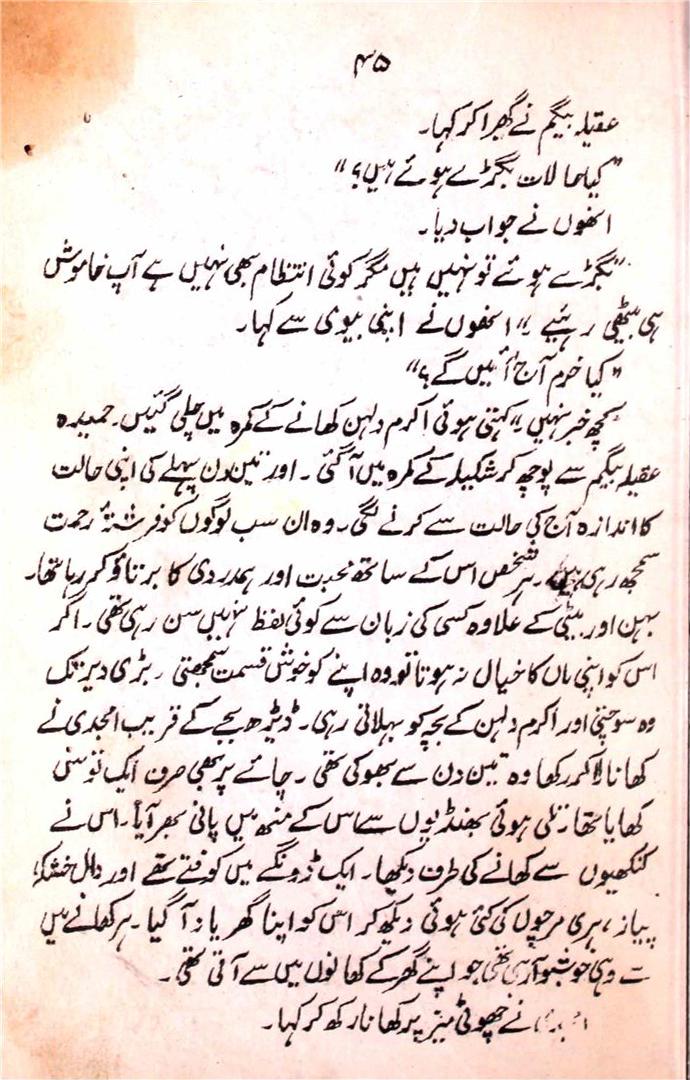 ۴۵
عقیلہ بیگم نے گھبرا کر کہا۔
"کیا حالات بگڑے ہوئے ہیں؟"
انھوں نے جواب دیا۔
"بگڑے ہوئے تو نہیں ہیں مگر کوئی انتظام بھی نہیں ہے آپ خاموش
ہی بیٹھی رہئیے۔" انھوں نے اپنی بیوی سے کہا۔
"کیا خرم آج آئیں گے؟"
کچھ خبر نہیں" کہتی ہوئی اکرم دلہن کھانے کے کمرہ میں چلی گئیں۔ حمیدہ
عقیلہ بیگم سے پوچھ کر شکیلہ کے کمرہ میں آگئی۔ اور تین دن پہلے کی اپنی حالت
کا اندازہ آج کی حالت سے کرنے لگی۔ وہ ان سب لوگوں کو فرشتۂ رحمت
سمجھ رہی تھی۔ ہر شخص اس کے ساتھ محبت اور ہمدردی کا برتاؤ کر رہا تھا۔
بہن اور بیٹی کے علاوہ کسی کی زبان سے کوئی لفظ نہیں سن رہی تھی۔ اگر
اس کو اپنی ماں کا خیال نہ ہوتا تو وہ اپنے کو خوش قسمت سمجھتی۔ بڑی دیر تک
وہ سوچتی اور اکرم دلہن کے بچہ کو بہلاتی رہی۔ ڈیڑھ بجے کے قریب امجدی نے
کھانا لا کر رکھا وہ تین دن سے بھوکی تھی۔ چائے پر بھی صرف ایک توس ہی
کھایا تھا۔ تلی ہوئی بھنڈیوں سے اس کے منھ میں پانی بھر آیا۔ اس نے
کنکھیوں سے کھانے کی طرف دیکھا۔ ایک ڈونگے میں کوفتے تھے اور دال خشکہ
پیاز، ہری مرچوں کی کٹی ہوئی دیکھ کر اس کو اپنا گھر یاد آگیا۔ ہر کھانے میں
سے وہی خوشبو آرہی تھی جو اپنے گھر کے کھانوں میں سے آتی تھی۔
نے چھوٹی میز پر کھانا رکھ کر کہا۔